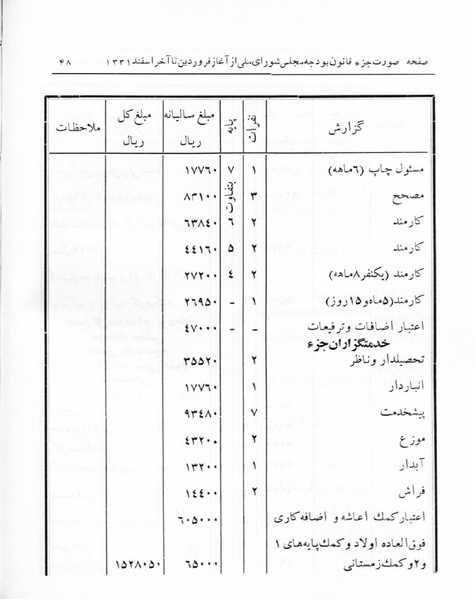 صفحه صورت جزء قانون بودجه مجلس شورای ملی از آغاز فروردین تا آخر اسفند ۱۳۳۱ ۴۸
گزارش نفرات پایه مبلغ سالیانه ریال مبلغ کل ریال ملاحظات
مسئول چاپ (۶ماهه) ۱ ۷ ۱۷۷۶۰
مصحح ۳ بتفاوت ۸۳۱۰۰
کارمند ۲ ۶ ۶۳۸۴۰
کارمند ۲ ۵ ۴۴۱۶۰
کارمند (یکنفر ۸ماهه) ۲ ۴ ۲۷۲۰۰
کارمند (۵ماه و ۱۵ روز) ۱ - ۲۶۹۵۰
اعتبار اضافات و ترفیعات - - ۴۷۰۰۰
خدمتگزاران جزء
تحصیلدار و ناظر ۲ ۳۵۵۲۰
انباردار ۱ ۱۷۷۶۰
پیشخدمت ۷ ۹۳۴۸۰
موزع ۲ ۴۳۲۰۰
آبدار ۱ ۱۳۲۰۰
فراش ۲ ۱۴۴۰۰
اعتبار کمك اعاشه و اضافه کاری ۶۰۵۰۰۰
فوق العاده اولاد و کمك پایه های ۱
و ۲ و کمك زمستانی ۶۵۰۰۰ ۱۵۲۸۰۵۰